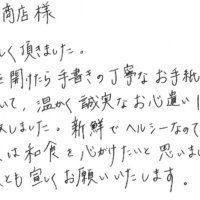 商店様
しく頂きました。
を開けたら手書きの丁寧なお手紙
いて、温かく誠実なお心遣い
しました。新鮮でヘルシーなので
は和食を心がけたいと思いま
とも宜しくお願いいたします。